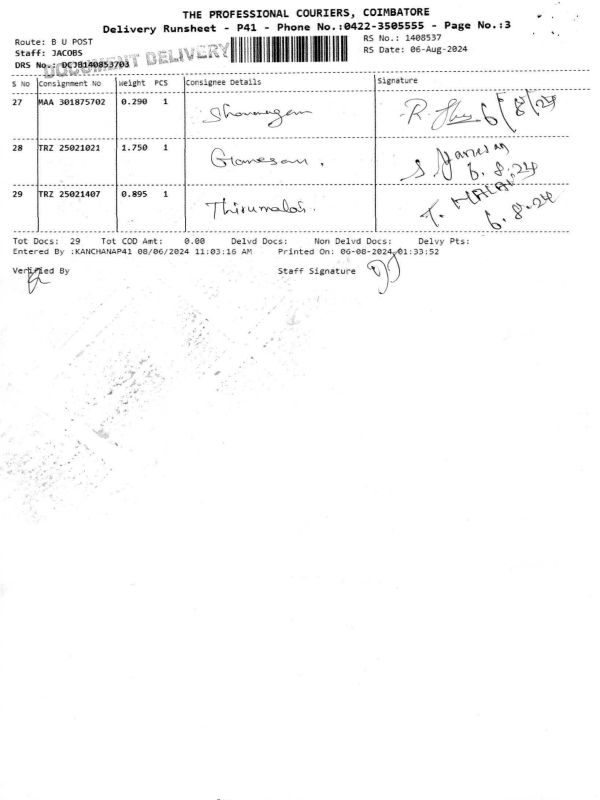 THE PROFESSIONAL COURIERS, COIMBATORE
Delivery Runsheet - P41 - Phone No.:0422-3505555 - Page No.:3
Route: B U POST
RS No.: 1408537
Staff: JACOBS
RS Date: 06-Aug-2024
DRS No.: DCJB140853703
DOCUMENT DELIVERY
S No Consignment No Weight PCS Consignee Details Signature
27 MAA 301875702 0.290 1 Shanmugam R. 6/8/24
28 TRZ 25021021 1.750 1 Ganesan. S. 6.8.24
29 TRZ 25021407 0.895 1 Thirumalai. T. 6.8.24
Tot Docs: 29 Tot COD Amt: 0.00 Delvd Docs: Non Delvd Docs: Delvy Pts:
Entered By :KANCHANAP41 08/06/2024 11:03:16 AM Printed On: 06-08-2024 01:33:52
Verified By Staff Signature